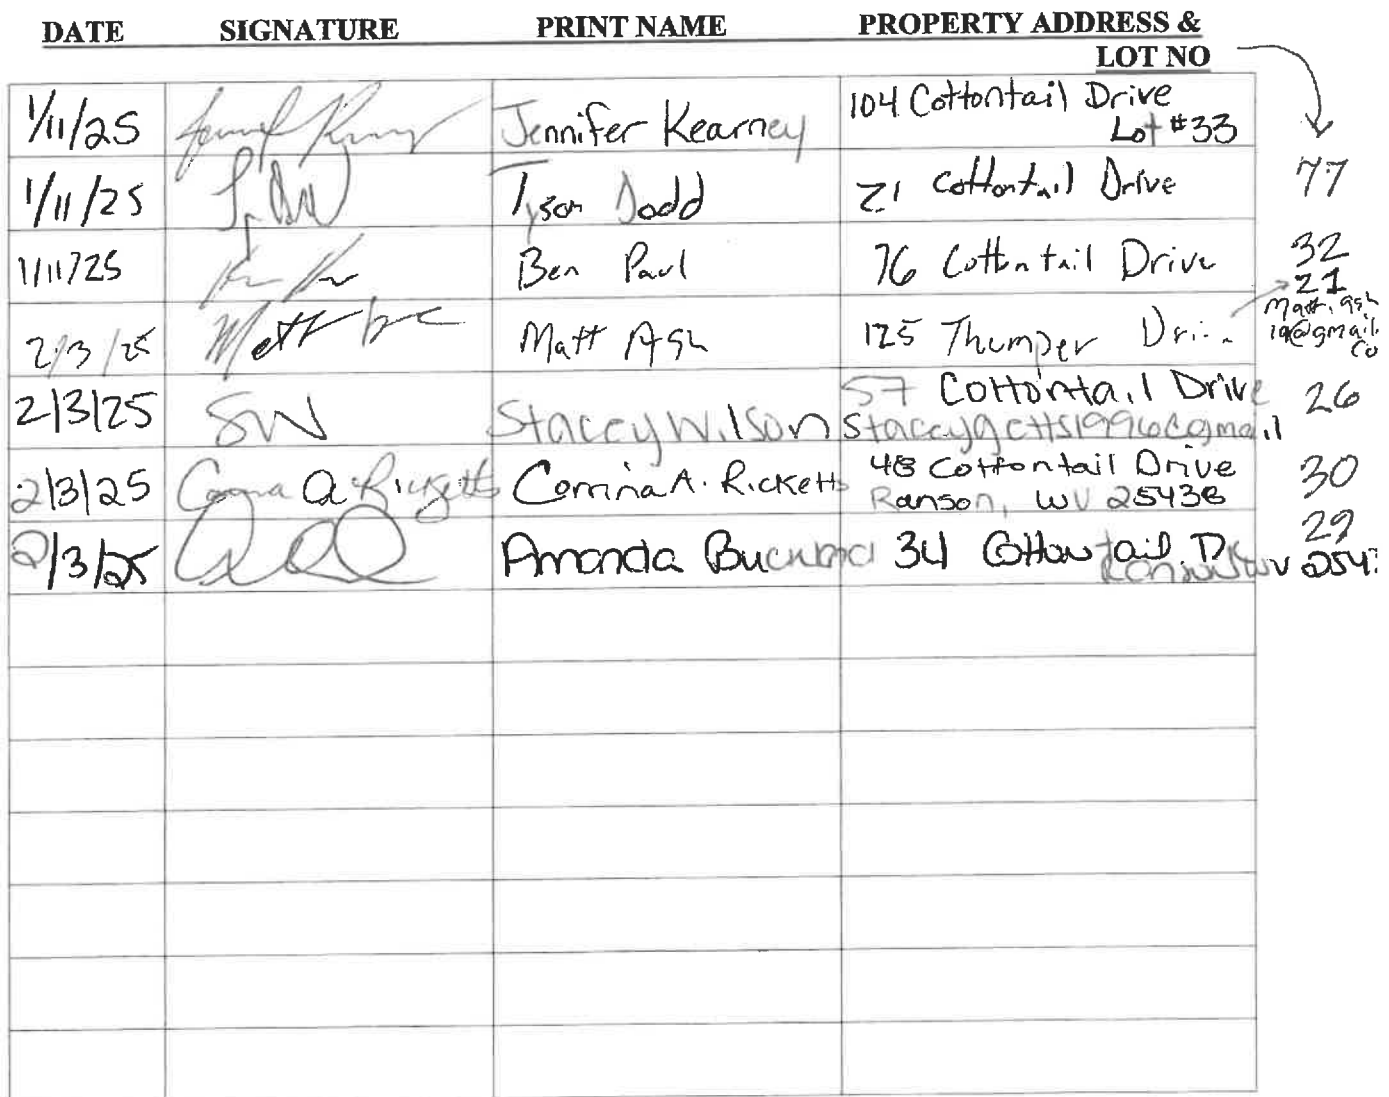 DATE SIGNATURE PRINT NAME PROPERTY ADDRESS &
LOT NO
1/11/25 Jennifer Kearney 104 Cottontail Drive
Lot #33
1/11/25 Tyson Dodd 21 Cottontail Drive 77
1/11/25 Ben Paul 76 Cottontail Drive 32
21
2/3/25 Matt Ash 125 Thumper Matt.ash
19@gmail.
Co
2/3/25 SW Stacey Wilson 57 Cottontail Drive 26
@gmail
2/3/25 Corrina A. Ricketts Corrina A. Ricketts 48 Cottontail Drive 30
Ranson, WV 25438
2/3/25 Amanda 34 Cottontail Dr 29
Ranson WV 2543